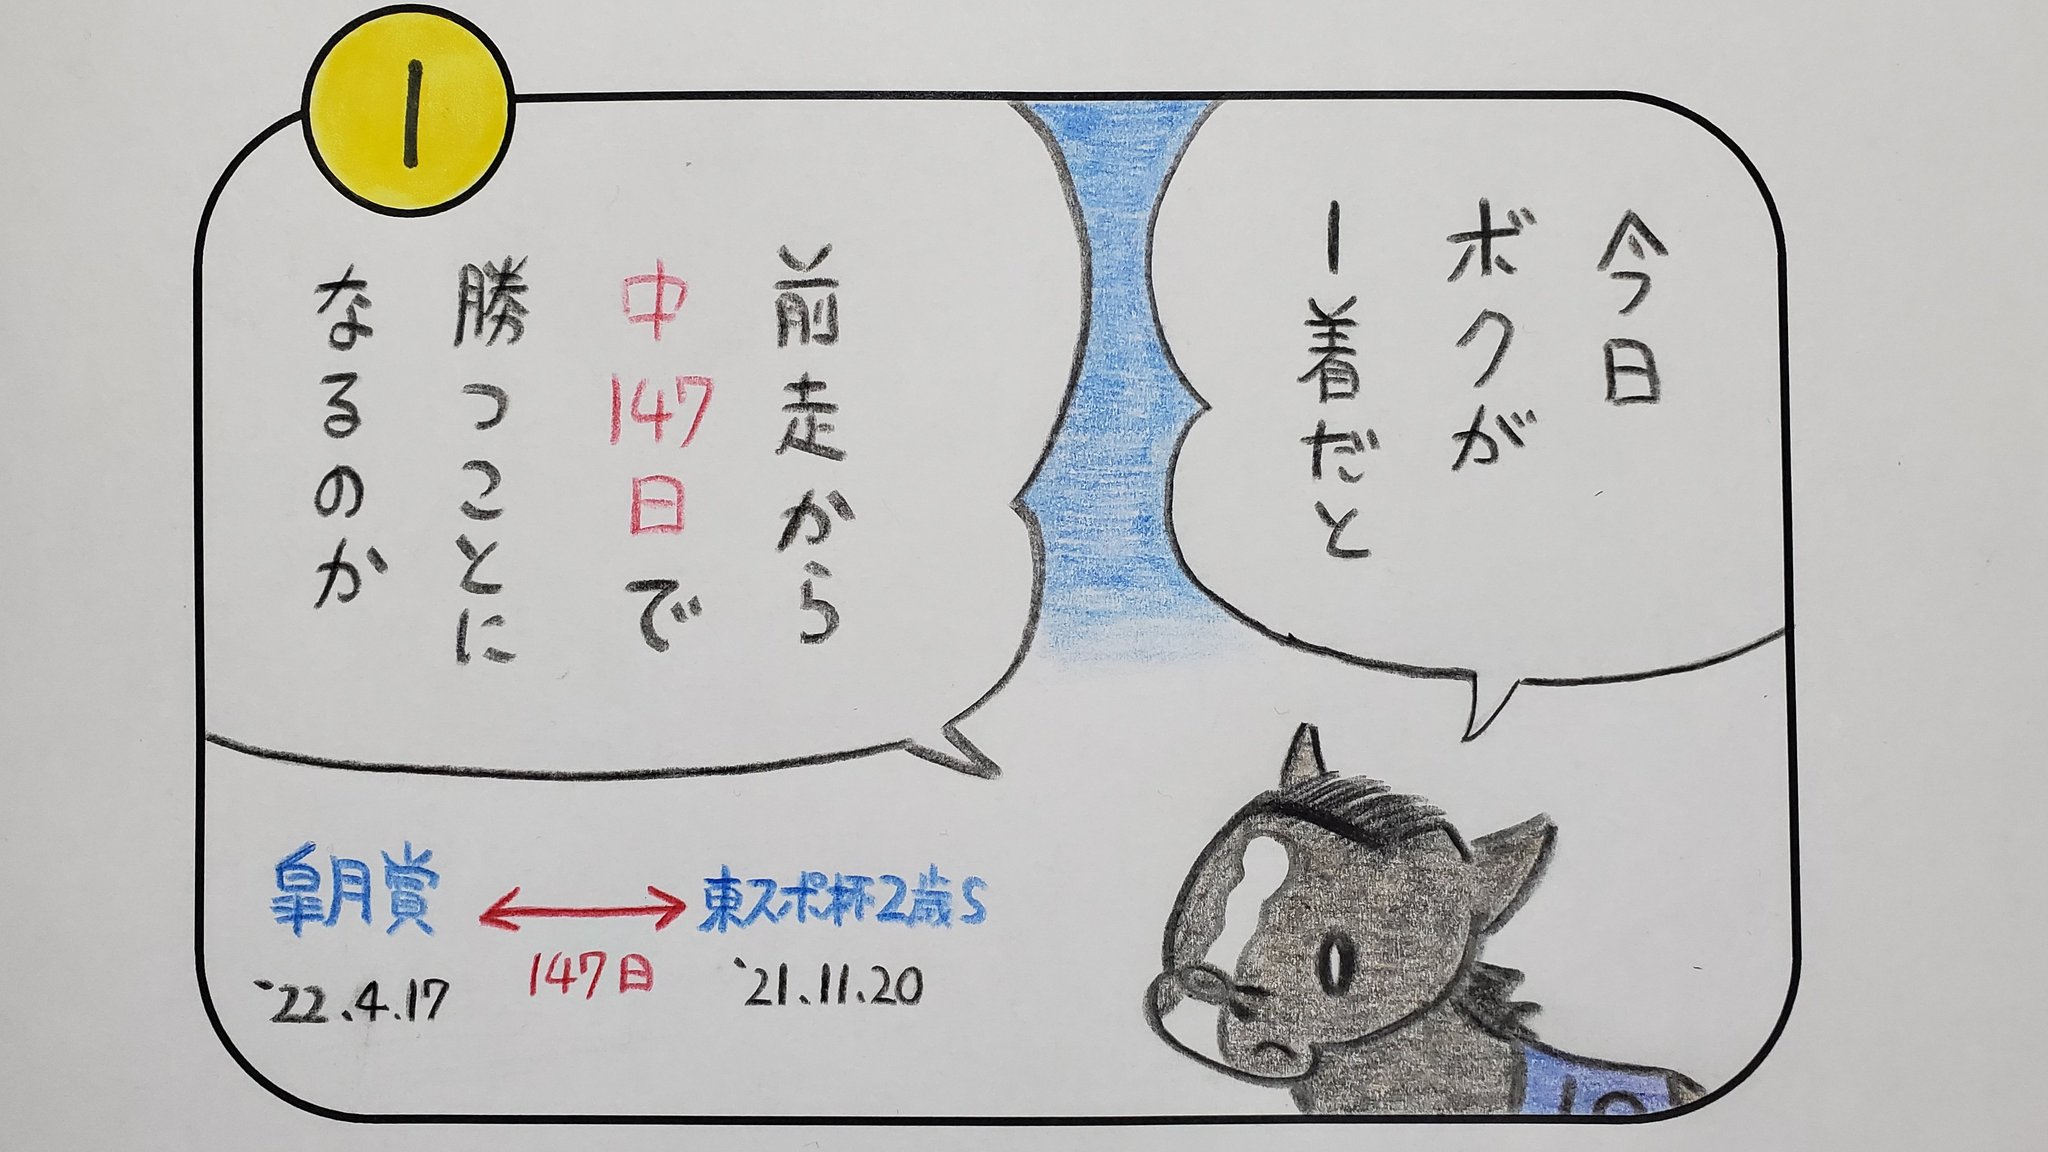 1
今日
ボクが
1着だと
前走から
中147日で
勝つことに
なるのか
皐月賞
東スポ杯2歳S
147日
'22.4.17
'21.11.20